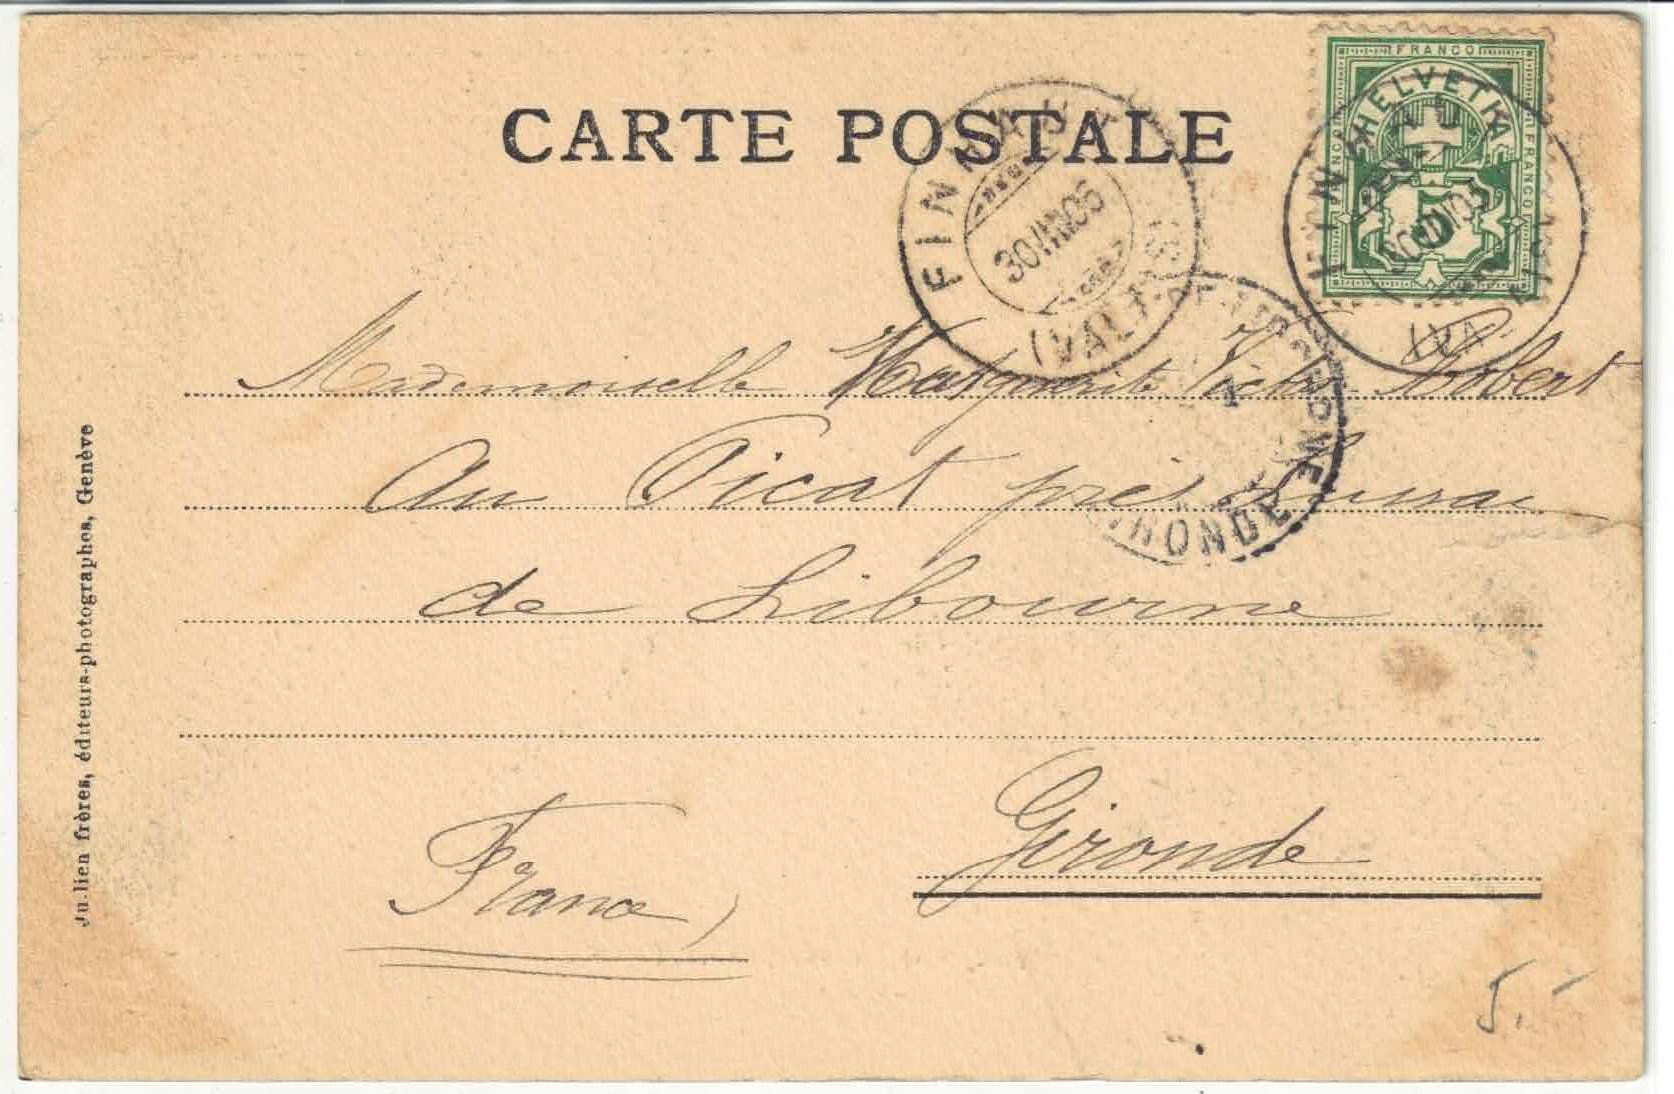 CARTE POSTALE
FRANCO
HELVETIA
FRANCO
5
FINHAUT
(VALAIS)
GIRONDE
Mademoiselle Marguerite Victor Robert
Au Picat près
de Libourne
Gironde
France)
Jullien frères, éditeurs-photographes, Genève
5.-